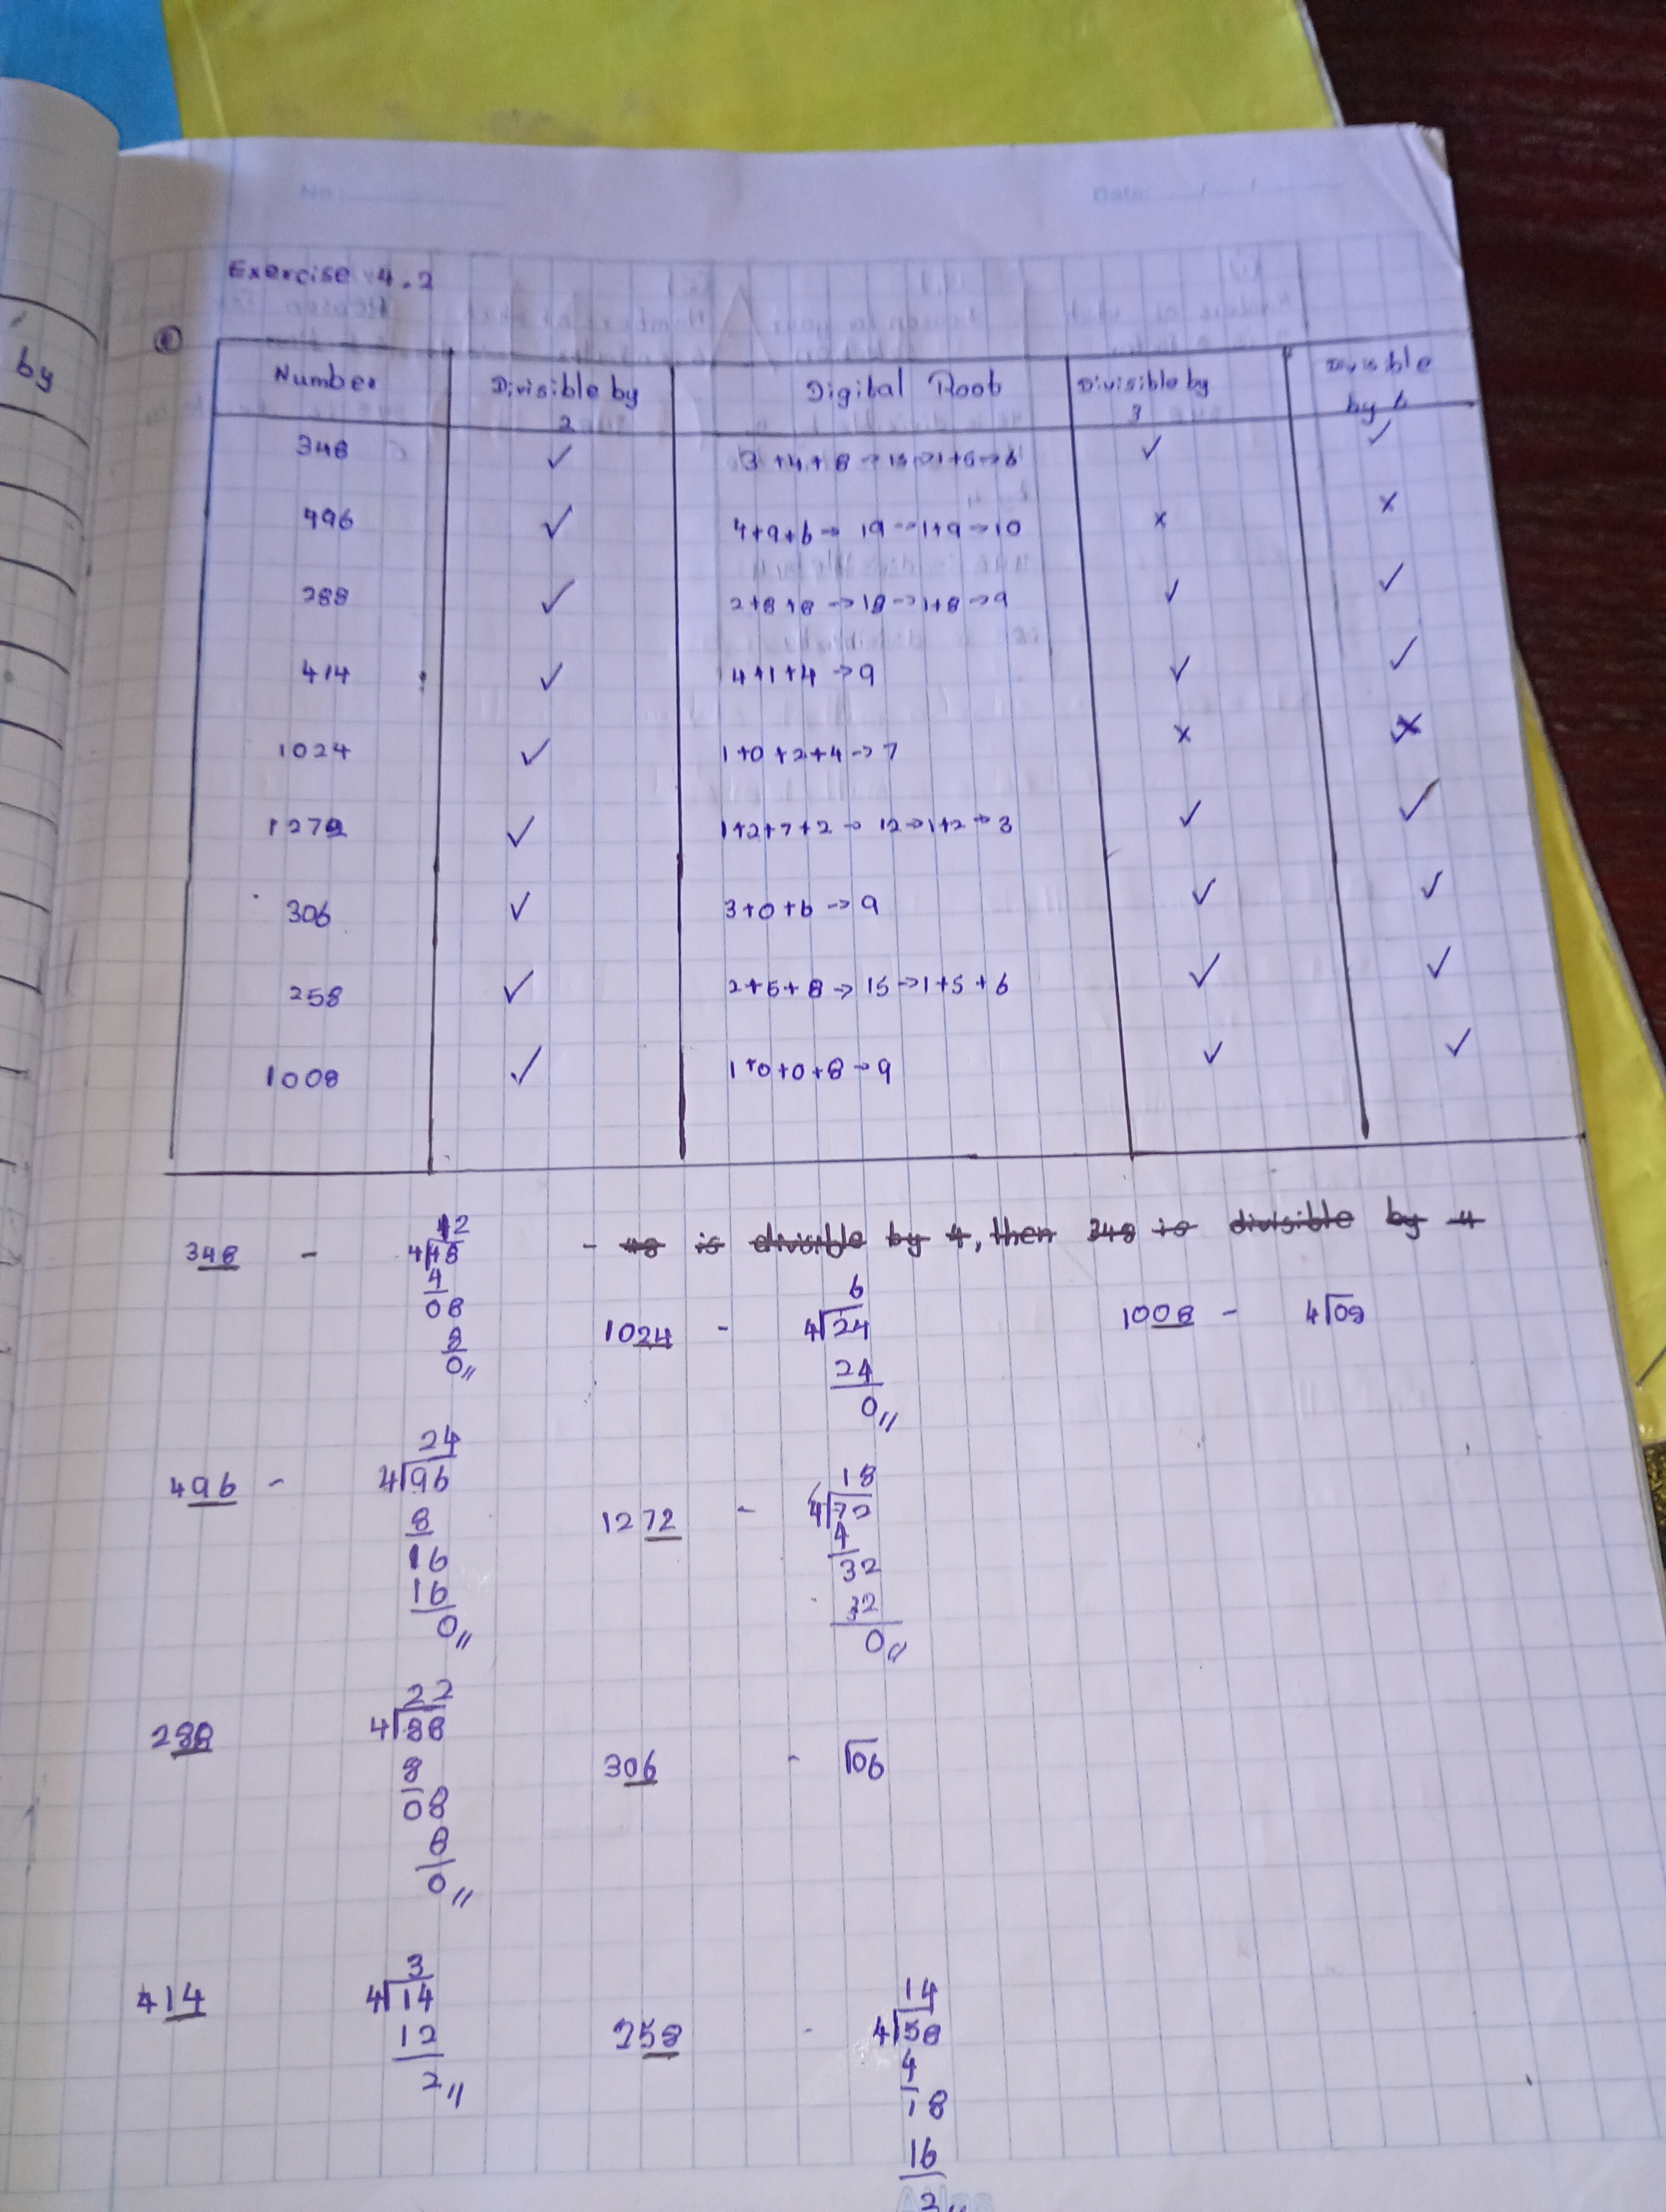 No:
Date:
by
Exercise 4.2
Number | Divisible by 2 | Digital Root | Divisible by 3 | Divisible by 6
348 | ✓ | 3+4+8→15→1+5→6 | ✓ | ✓
496 | ✓ | 4+9+6→ 19→1+9→10 | x | x
288 | ✓ | 2+8+8→18→1+8→9 | ✓ | ✓
414 | ✓ | 4+1+4→9 | ✓ | ✓
1024 | ✓ | 1+0+2+4→7 | x | x
1272 | ✓ | 1+2+7+2→ 12→1+2→3 | ✓ | ✓
306 | ✓ | 3+0+6→9 | ✓ | ✓
258 | ✓ | 2+5+8→15→1+5+6 | ✓ | ✓
1008 | ✓ | 1+0+0+8→9 | ✓ | ✓
348 -
12
4√48
4
08
8
0//
- 48 is divisible by 4, then 348 is divisible by 4
496 -
24
4√96
8
16
16
0//
288
22
4√88
8
08
8
0//
414
3
4√14
12
2//
1024 -
6
4√24
24
0//
1272 -
18
4√72
4
32
32
0//
306 - √06
258 -
14
4√58
4
18
16
2//
1008 - 4√08